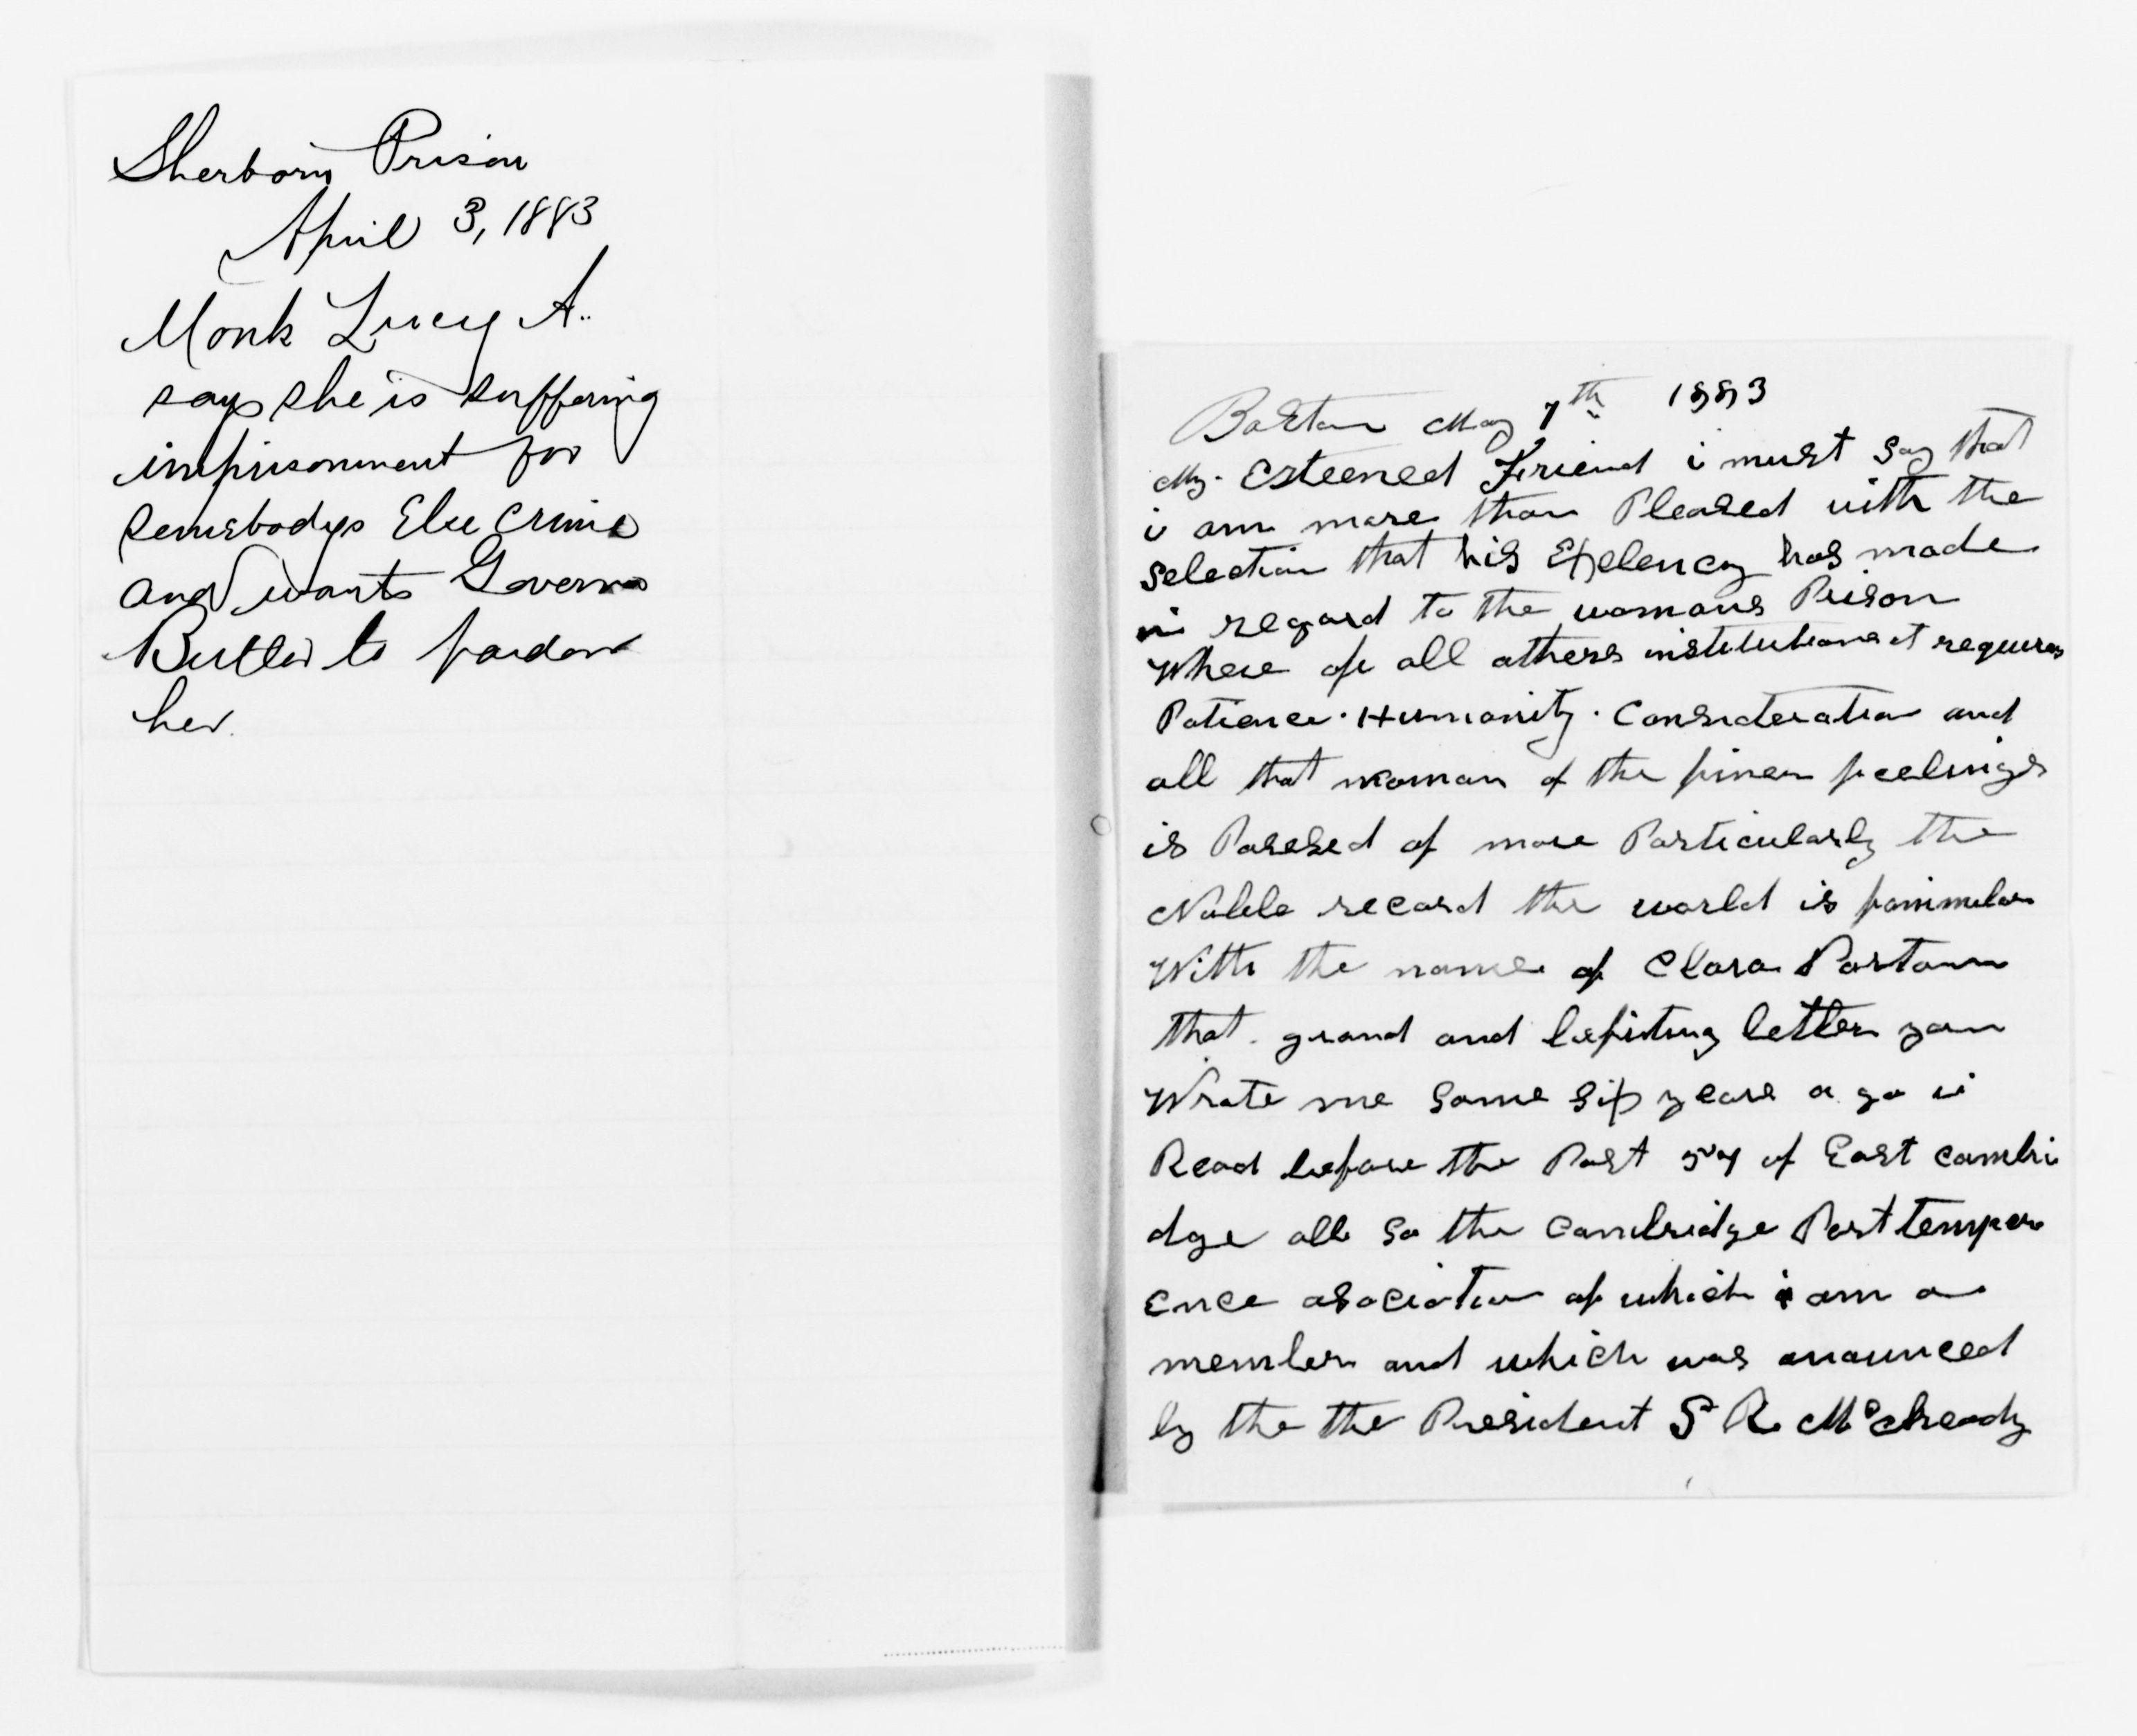 Sherborn Prison
April 3, 1883
Monk Lucy A.
says she is suffering
imprisonment for
somebodys Else crime
and wants Governor
Butler to pardon
her.
Boston May 7th 1883
My. Esteened Friend i must say that
i am more than Pleased with the
selection that his Exelency has made
in regard to the womans Prison
Where of all athers institutions it requires
Patience. Humanity. Consideration and
all that woman of the finer feelings
is Possesed of more Particularly the
Noble record the world is fammular
With the name of Clara Bartown
that. grand and befiting letter you
Wrote me some six years a go i
Read before the Post 57 of East cambri
dge all so the Cambridge Port temper
ence asociation of which i am a
member and which was anounced
by the the President S R McCready